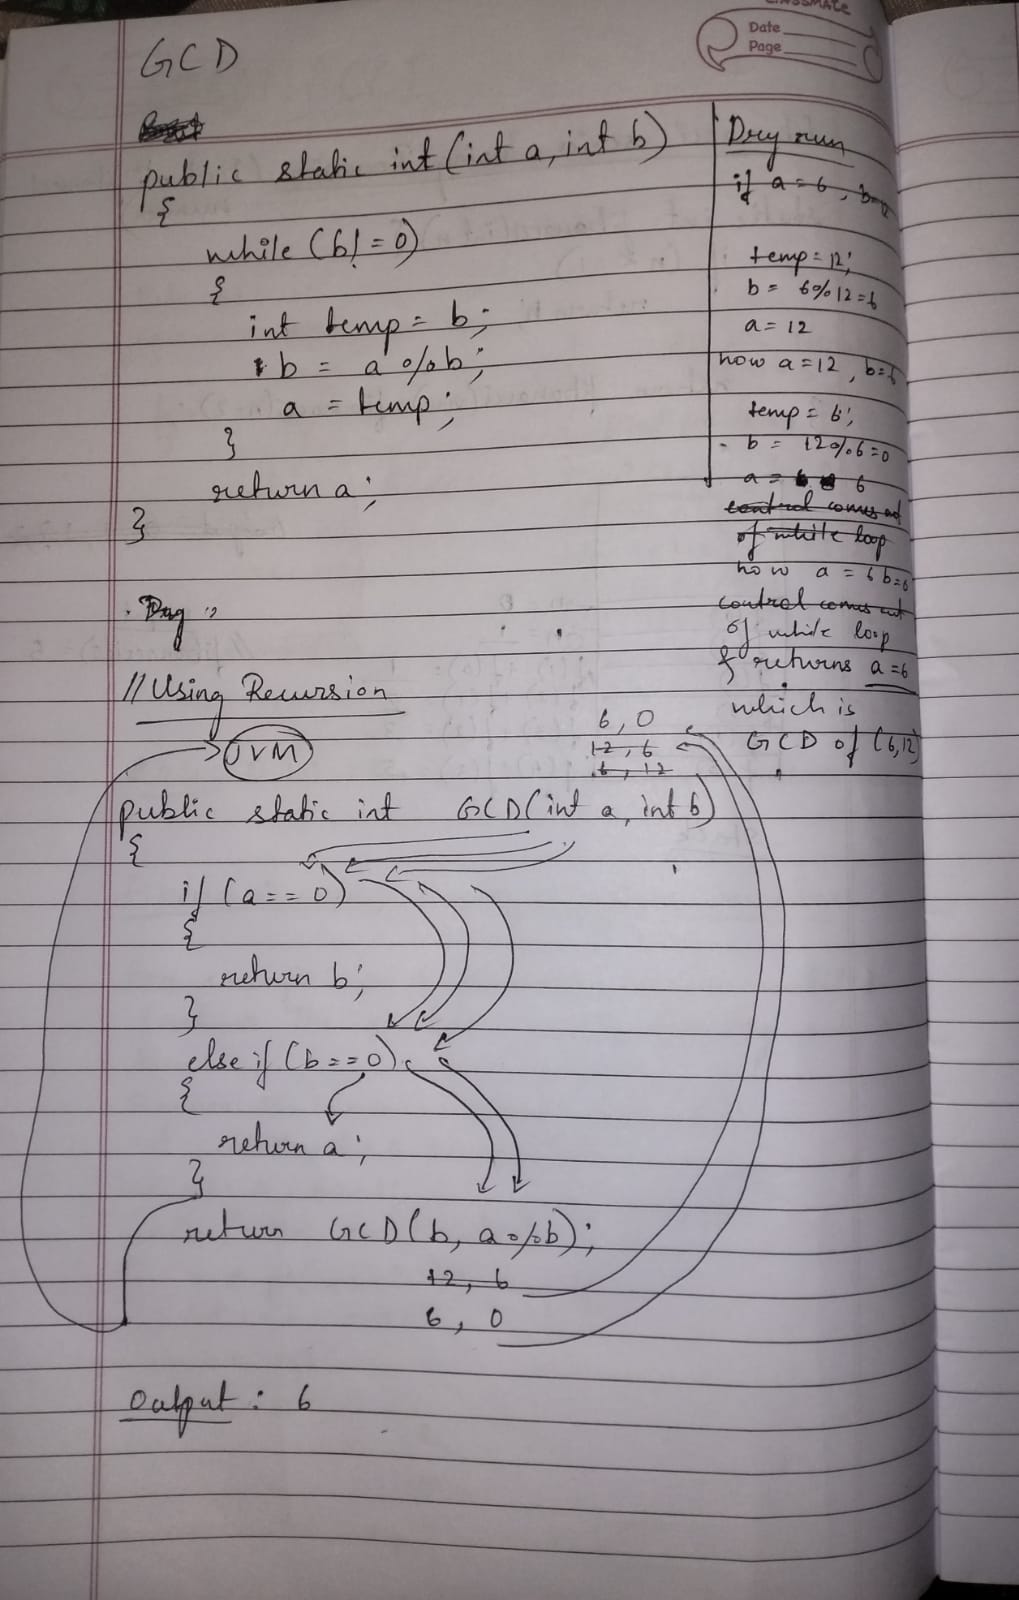 classmate
Date
Page
GCD
public static int (int a, int b)
{
while (b! = 0)
{
int temp = b;
b = a % b;
a = temp;
}
return a;
}
Dry run
if a = 6, b=12
temp = 12;
b = 6%12=6
a = 12
now a = 12, b=6
temp = 6;
b = 12%6=0
a = 6
control comes out
of while loop
now a = 6 b=0
control comes out
of while loop
& returns a = 6
which is
GCD of (6,12)
// Using Recursion
JVM
6, 0
12, 6
6, 12
public static int GCD(int a, int b)
{
if (a == 0)
{
return b;
}
else if (b == 0)
{
return a;
}
return GCD(b, a%b);
12, 6
6, 0
Output : 6